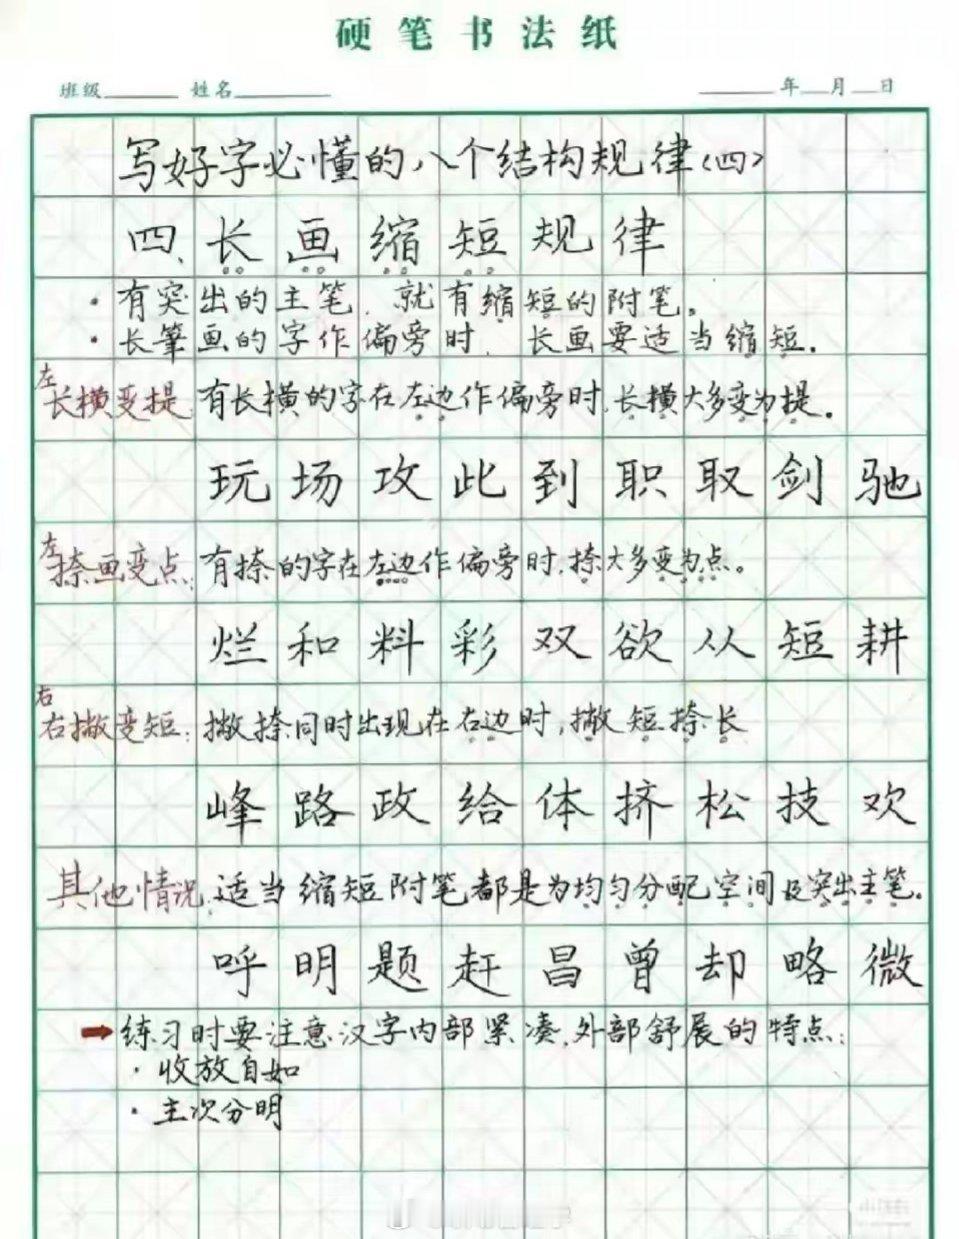 硬笔书法纸
班级 姓名 年 月 日
写好字必懂的八个结构规律(四)
四、长画缩短规律
·有突出的主笔,就有缩短的附笔。
·长筆画的字作偏旁时,长画要适当缩短.
左
长横变提:有长横的字在左边作偏旁时,长横大多变为提。
玩场攻此到职取剑驰
左
捺画变点:有捺的字在左边作偏旁时,捺大多变为点。
烂和料彩双欲从短耕
右
右撇变短:撇捺同时出现在右边时,撇短捺长
峰路政给体挤松技欢
其他情况:适当缩短附笔都是为均匀分配空间及突出主笔。
呼明题赶昌曾却略微
➡练习时要注意汉字内部紧凑,外部舒展的特点:
·收放自如
·主次分明